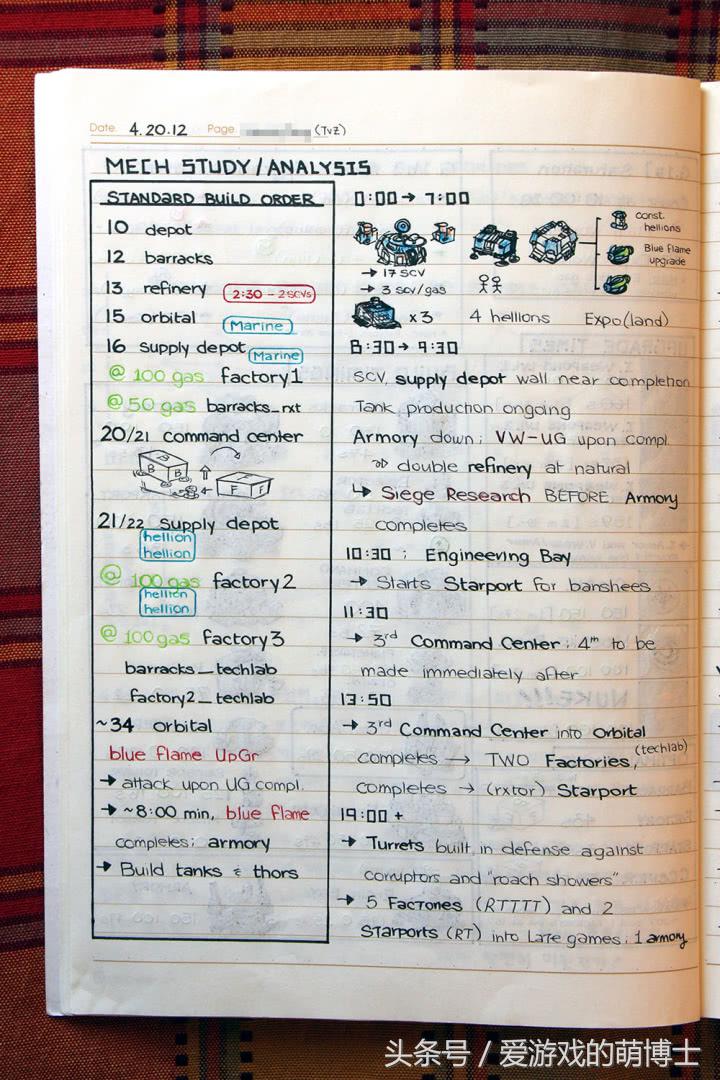 Date. 4.20.12 Page. (TvZ)
MECH STUDY/ANALYSIS
STANDARD BUILD ORDER
10 depot
12 barracks
13 refinery 2:30 - 2SCVs
15 orbital Marine
16 supply depot Marine
@ 100 gas factory1
@ 50 gas barracks_rxt
20/21 command center
B B
F F
21/22 supply depot
hellion
hellion
@ 100 gas factory2
hellion
hellion
@ 100 gas factory3
barracks_techlab
factory2_techlab
~34 orbital
blue flame UpGr
→ attack upon UG compl.
→ ~8:00 min, blue flame
completes; armory
→ Build tanks & thors
0:00 → 7:00
const.
hellions
Blue flame
upgrade
→ 17 SCV
→ 3 scv/gas
x3 4 hellions Expo(land)
8:30 → 9:30
SCV, supply depot wall near completion
Tank production ongoing
Armory down; VW-UG upon compl.
double refinery at natural
↳ Siege Research BEFORE Armory
completes
10:30 ; Engineering Bay
→ Starts Starport for banshees
11:30
→ 3rd Command Center; 4th to be
made immediately after
13:50
→ 3rd Command Center into Orbital
completes → TWO Factories, (techlab)
completes → (rxtor) Starport
19:00 +
→ Turrets built in defense against
corruptors and "roach showers"
→ 5 Factories (RTTTT) and 2
Starports (RT) into Late games; 1 armory
头条号 / 爱游戏的萌博士